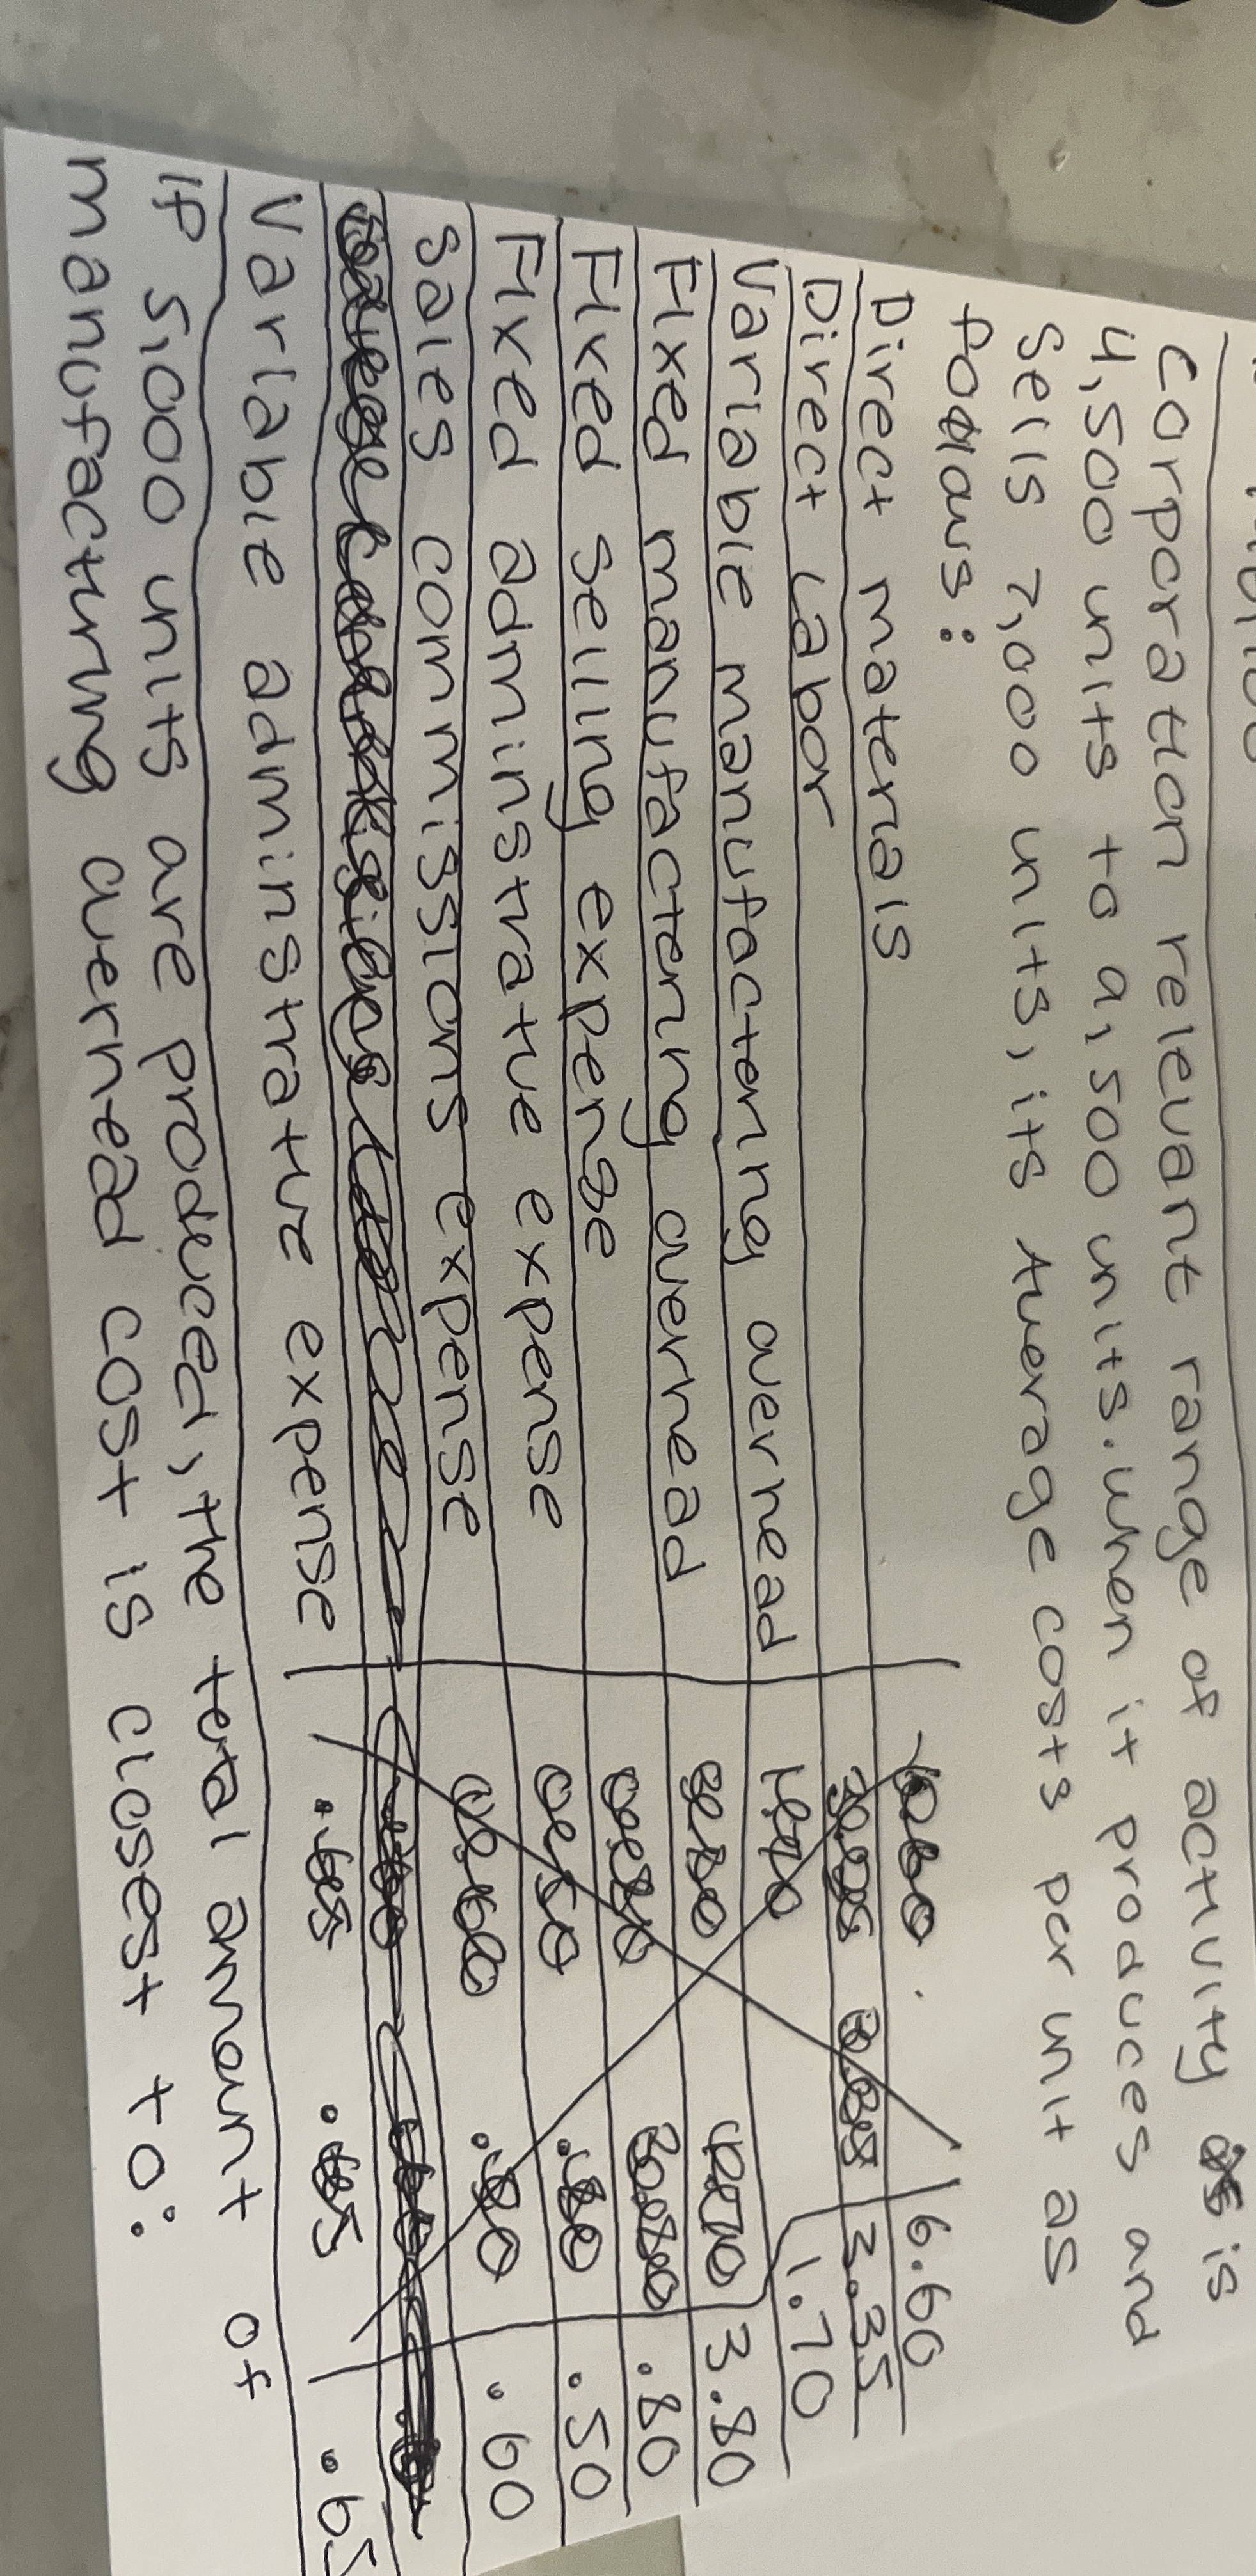 Corporation relevant range of activity is
4,500 units to 9,500 units. When it produces and
Sells 7,000 units, its Average costs per unit as
follows:
Direct materials 6.60
Direct Labor 3.35
Variable manufactering overhead 1.70
Fixed manufactering overhead 3.80
Fixed selling expense .80
Fixed adminstrative expense .50
Sales commissions expense .60
Variable adminstrative expense .65
If 5,000 units are produced, the total amount of
manufacturing overhead cost is closest to: